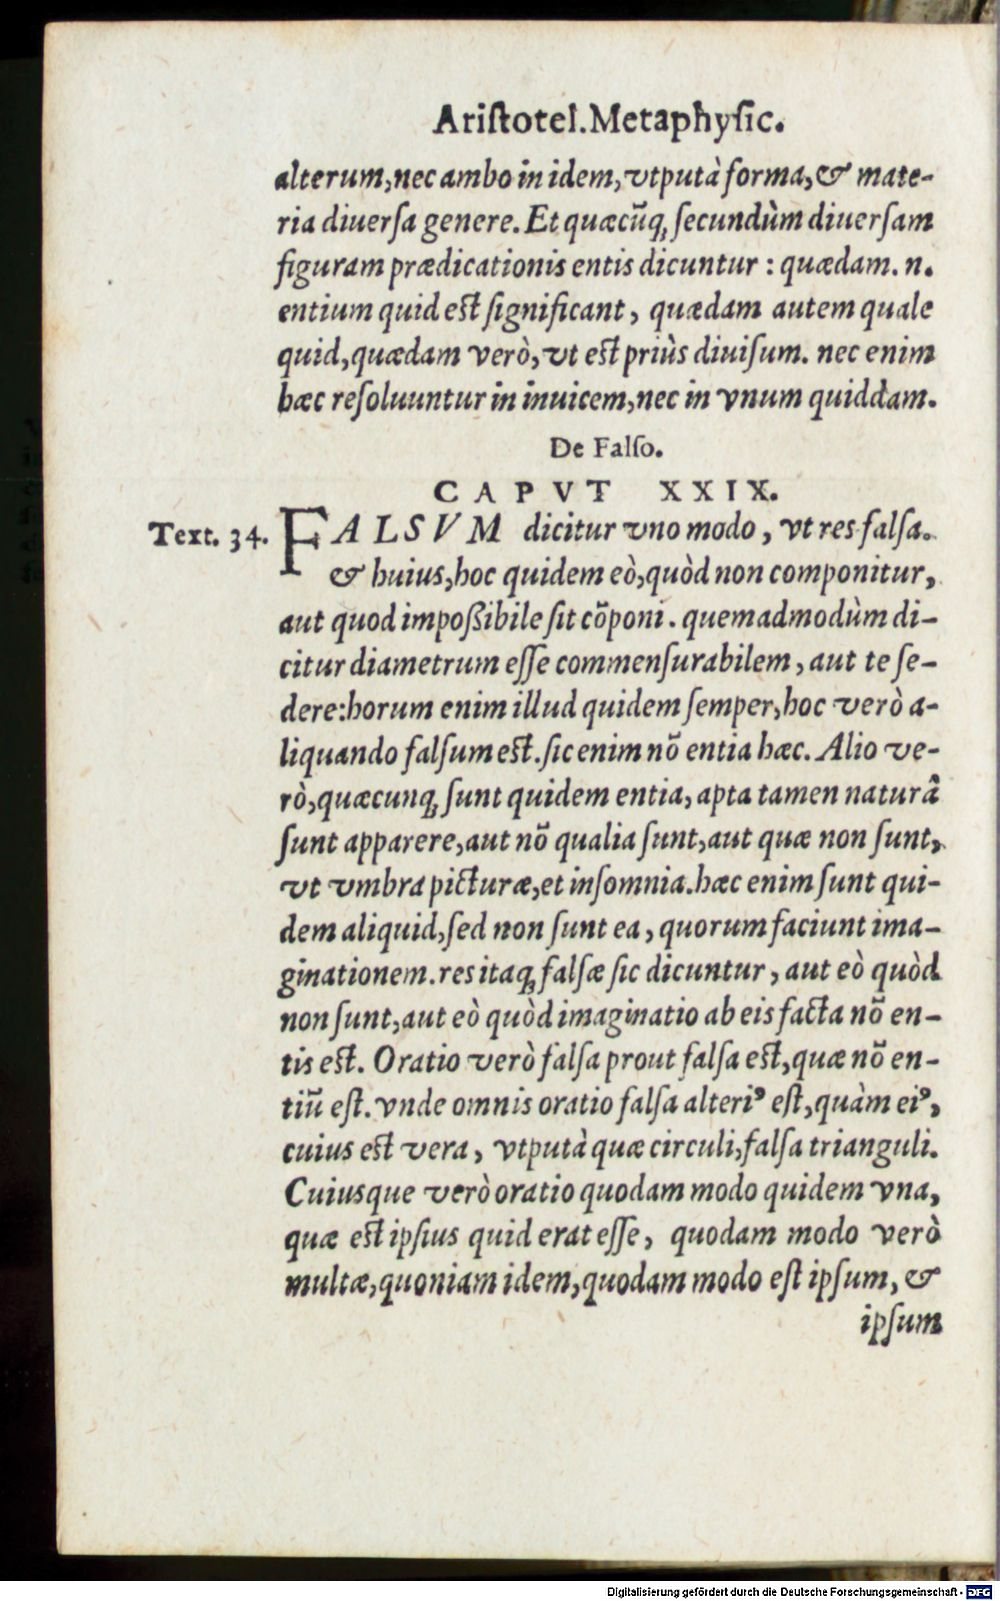 Ariſtotel.Metaphyſic.
alterum,nec ambo in idem,vtputà forma,& mate-
ria diuerſa genere. Et quæcũq; ſecundùm diuerſam
figuram prædicationis entis dicuntur : quædam. n.
entium quid eſt ſignificant, quædam autem quale
quid,quædam verò,vt eſt priùs diuiſum. nec enim
hæc reſoluuntur in inuicem,nec in vnum quiddam.
De Falſo.
CAPVT XXIX.
Text. 34. FALSVM dicitur vno modo, vt res falſa.
& huius,hoc quidem eò,quòd non componitur,
aut quod impoßibile ſit cõponi. quemadmodùm di-
citur diametrum eſſe commenſurabilem, aut te ſe-
dere:horum enim illud quidem ſemper,hoc verò a-
liquando falſum eſt.ſic enim nõ entia hæc. Alio ve-
rò,quæcunq; ſunt quidem entia, apta tamen naturâ
ſunt apparere,aut nõ qualia ſunt,aut quæ non ſunt,
vt vmbra picturæ,et inſomnia.hæc enim ſunt qui-
dem aliquid,ſed non ſunt ea, quorum faciunt ima-
ginationem.res itaq; falſæ ſic dicuntur, aut eò quòd
non ſunt,aut eò quòd imaginatio ab eis facta nõ en-
tis eſt. Oratio verò falſa prout falſa eſt,quæ nõ en-
tiũ eſt. vnde omnis oratio falſa alteriꝰ eſt,quàm eiꝰ,
cuius eſt vera, vtputà quæ circuli,falſa trianguli.
Cuiusque verò oratio quodam modo quidem vna,
quæ eſt ipſius quid erat eſſe, quodam modo verò
multæ,quoniam idem,quodam modo eſt ipſum, &
ipſum
Digitalisierung gefördert durch die Deutsche Forschungsgemeinschaft - DFG